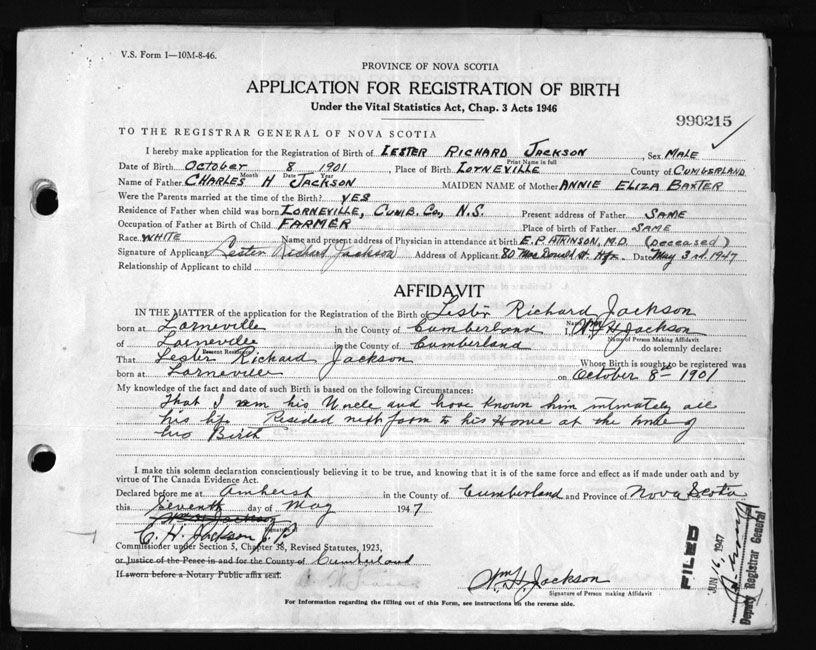 V.S. Form 1—10M-8-46.
PROVINCE OF NOVA SCOTIA
APPLICATION FOR REGISTRATION OF BIRTH
Under the Vital Statistics Act, Chap. 3 Acts 1946
990215
TO THE REGISTRAR GENERAL OF NOVA SCOTIA
I hereby make application for the Registration of Birth of LESTER RICHARD JACKSON, Sex MALE
Print Name in full
Date of Birth OCTOBER 8 1901, Place of Birth LORNEVILLE County of CUMBERLAND
Month Date Year
Name of Father CHARLES H JACKSON MAIDEN NAME of Mother ANNIE ELIZA BAXTER
Were the Parents married at the time of the Birth? YES
Residence of Father when child was born LORNEVILLE, CUMB. CO., N.S. Present address of Father SAME
Occupation of Father at Birth of Child FARMER Place of birth of Father SAME
Race WHITE Name and present address of Physician in attendance at birth E. P. ATKINSON, M.D. (Deceased)
Signature of Applicant Lester Richard Jackson Address of Applicant 80 St. Hfx. Date May 3rd, 1947
Relationship of Applicant to child
AFFIDAVIT
IN THE MATTER of the application for the Registration of the Birth of Lester Richard Jackson
born at Lorneville in the County of Cumberland I, Wm H. Jackson
Name of Person Making Affidavit
of Lorneville in the County of Cumberland do solemnly declare:
Present Residence
That Lester Richard Jackson Whose Birth is sought to be registered was
born at Lorneville on October 8th 1901
My knowledge of the fact and date of such Birth is based on the following Circumstances:
That I am his Uncle and have known him intimately all
his life. Resided next farm to his Home at the time of
his Birth
I make this solemn declaration conscientiously believing it to be true, and knowing that it is of the same force and effect as if made under oath and by
virtue of The Canada Evidence Act.
Declared before me at Amherst in the County of Cumberland and Province of Nova Scotia
this Seventh day of May 1947
C. H. Jackson J. P.
Commissioner under Section 5, Chapter 38, Revised Statutes, 1923,
or Justice of the Peace in and for the County of Cumberland
If sworn before a Notary Public affix seal.
Wm. H. Jackson
Signature of Person making Affidavit
For Information regarding the filling out of this Form, see instructions on the reverse side.
FILED
JUN 16 1947
Deputy Registrar General